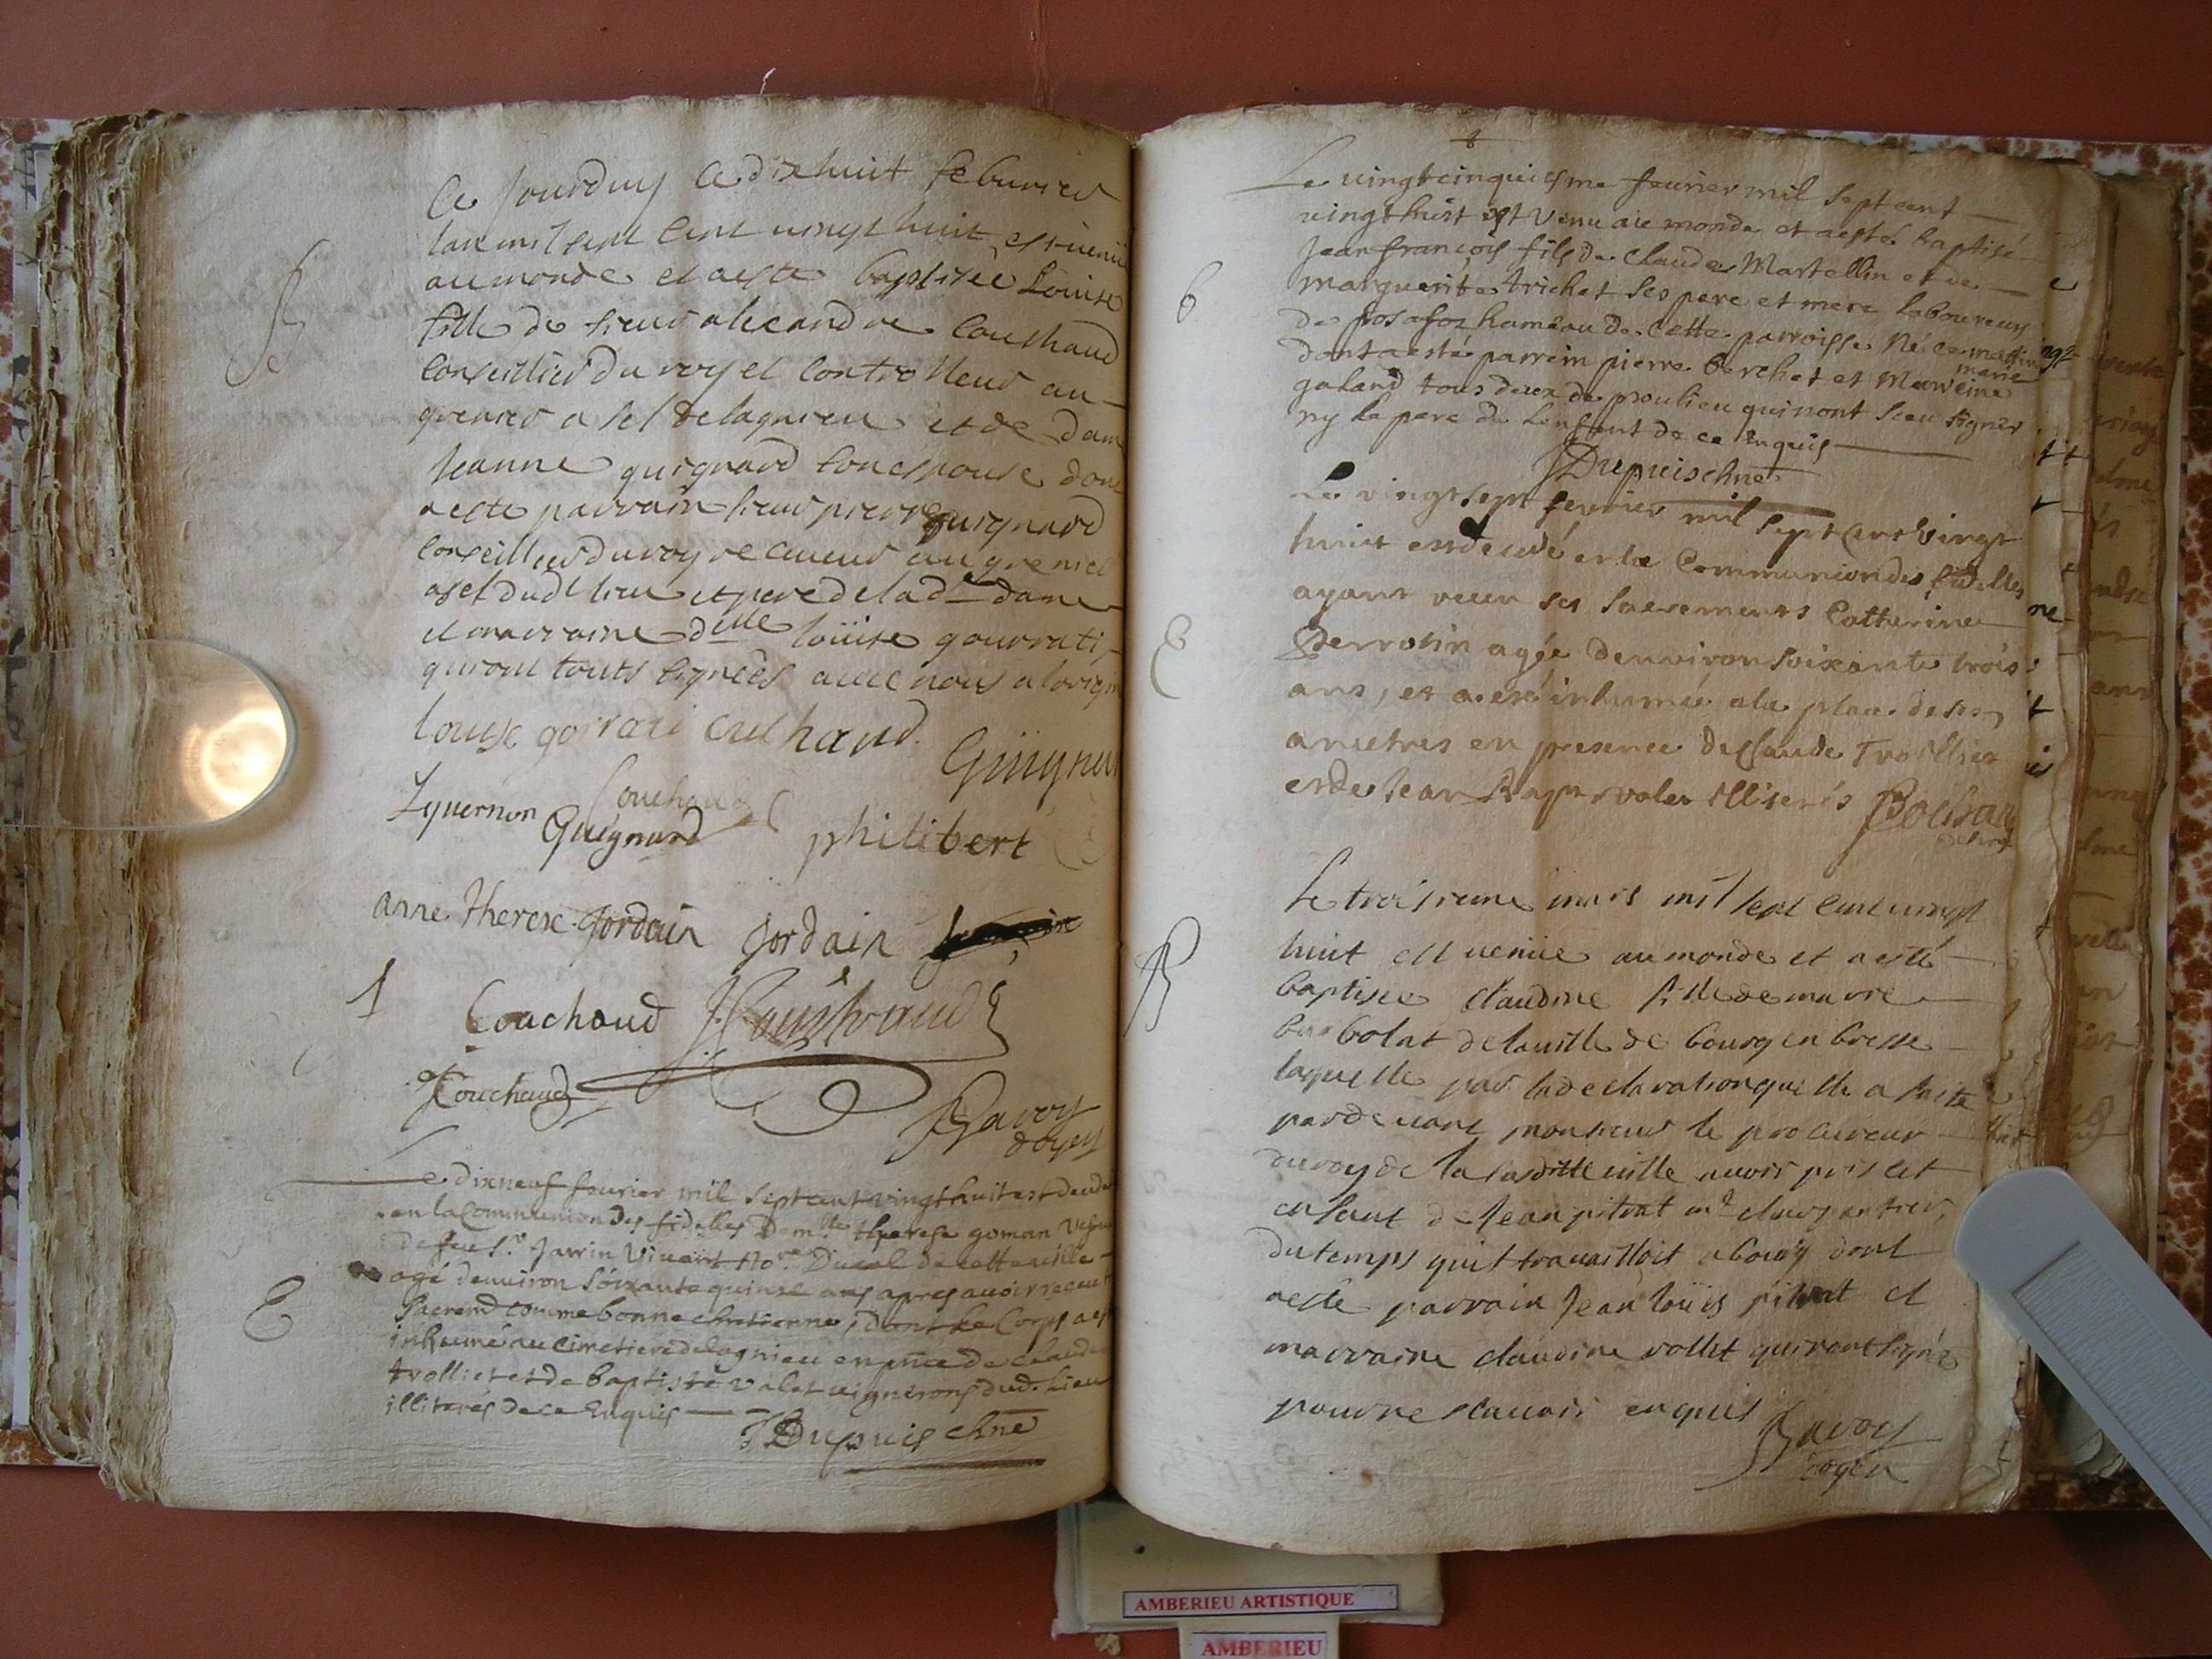 Ce Jourduy Ce dix huit feburier
lan mil sept cent vingt huit est venüe
au monde et aesté baptisée Louise
fille de sieur alexandre Couchaud
Conseillier du roy et Controlleur au
grenier a sel de lagnieu et de dam
Jeanne guignard son espouse dont
aesté parrain sieur pierre guignard
Conseillier du roy receveur au grenier
a sel dud lieu et pere de lad dame
et marraine dlle loüise gourrati
qui ont touts signées avec nous a lorigin
louise gorrati Cuchaud. Güigna
Couchaud
Yquernon Guignard philibert
anne therese Jordain Jordain
Couchaud J Couchaud
J Couchaud
Savoy
doyen
Le dixneuf feurier mil sept cent vingt huit est decedé
en la Communion des fidelles Demlle therese goman vefue
de feu Sr Jarrin Vivant Nore Ducal de cette ville
agé denviron Soixante quinse ans apres avoir receut
Sacremt comme bonne chretienne, dont le Corps aes
inhumé au cimetiere de lagnieu en pnce de claude
trolliet et de baptiste valet vignerons dud. Lieu
illiterés de ce Enquis
JDupuis chne
Le vingtcinquiesme feurier mil sept cent
vingt huit est venu au monde et aesté baptisé
Jean françois fils de Claude Martellin et de
marguerite trichet ses pere et mere laboureurs
de posafoz hameau de cette parroisse Né ce matin
dont aesté parrein pierre berchet et Marreine
marie
galand tous deux de proulieu qui nont sceu signer
ny le pere de Lenfant de ce Enquis
JDupuis chne
Le vingt sept fevrier mil sept cent vingt
huict est decedé en la Communion des fidelles
ayant receu ses sacrements Catherine
Perrotin agée denviron soixante trois
ans, et a esté inhumée a la place de ses
ancetres en presence de Claude Trollliet
et de Jean Bapt valet illiterés
Le troisieme mars mil sept cent vingt
huit est venüe au monde et aesté
baptisée claudine fille de marie
bolat de la ville de bourg en bresse
laquelle par la declaration quelle a faite
pardevant monsieur le procureur
du roy de la laditte ville avoir pris cet
enfant de Jean pitrat mre charpantier,
du temps quil travailloit a bourg dont
aesté parrain Jean loüis pitrat et
marraine claudine vollet qui nont signé
pour ne scavoir enquis
Savoy
doyen
AMBERIEU ARTISTIQUE
AMBERIEU